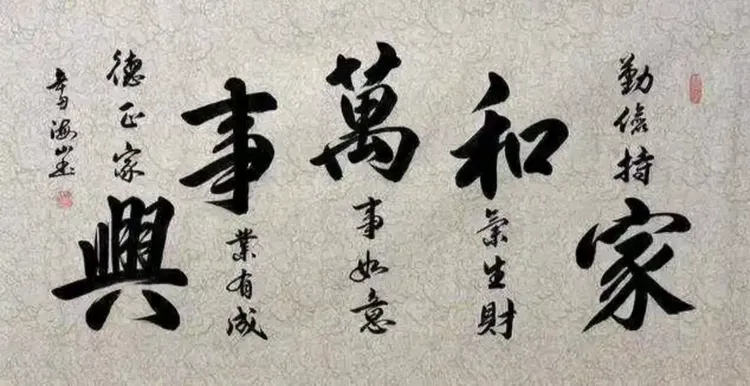 勤儉持家
和氣生財
萬事如意
事業有成
德正家興